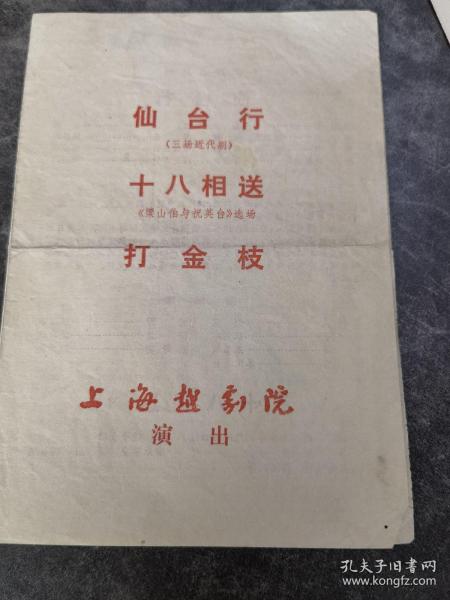 仙台行
(三场近代剧)
十八相送
《梁山伯与祝英台》选场
打金枝
上海越剧院
演出
孔夫子旧书网
www.kongfz.com